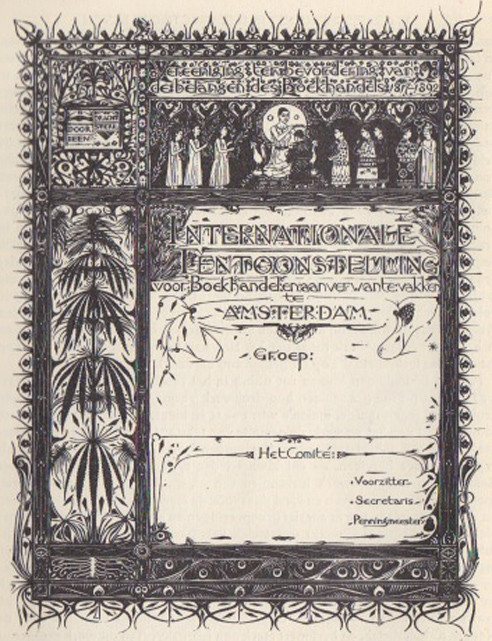 Vereeniging ter bevordering van
de belangen des Boekhandels 1817-1892
DOOR
EEN
DRACHT
STERK
INTERNATIONALE
TENTOONSTELLING
voor Boekhandel en aanverwante vakken
te
AMSTERDAM
Groep:
Het Comité:
Voorzitter
Secretaris
Penningmeester